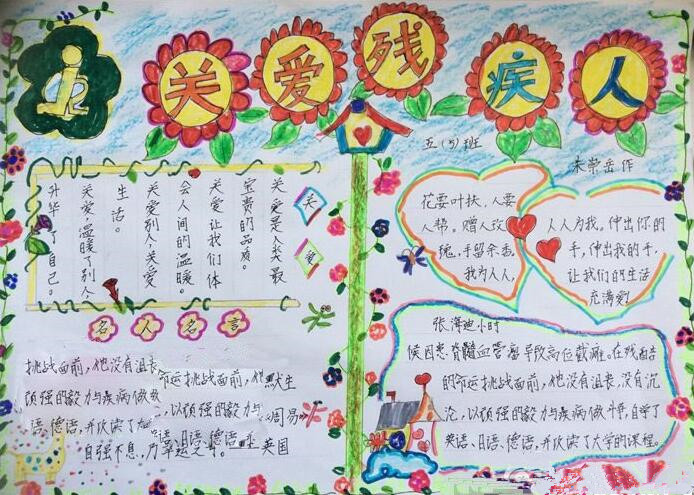 关爱残疾人
五(5)班
作
关爱是人类最
宝贵的品质。
关爱让我们体
会人间的温暖。
关爱别人,关爱
生活。
关爱,温暖了别人,
升华了自己。
关
爱
花要叶扶,人要
人帮。赠人玫
瑰,手留余香。
我为人人,
人人为我。伸出你的
手,伸出我的手,
让我们的生活
充满爱!
名人名言
挑战面前,他没有沮丧
命运挑战面前,他默生
顽强的毅力与疾病做
,以顽强的毅力与《周易》
语、德语,并
语、日语、德语
自强不息,乃幸运之母。——英国
张海迪小时
候因患脊髓血管瘤导致高位截瘫。在残酷的
命运挑战面前,他没有沮丧,没有沉
沦,以顽强的毅力与疾病做斗争,自学了
英语、日语、德语,并攻读了大学的课程。